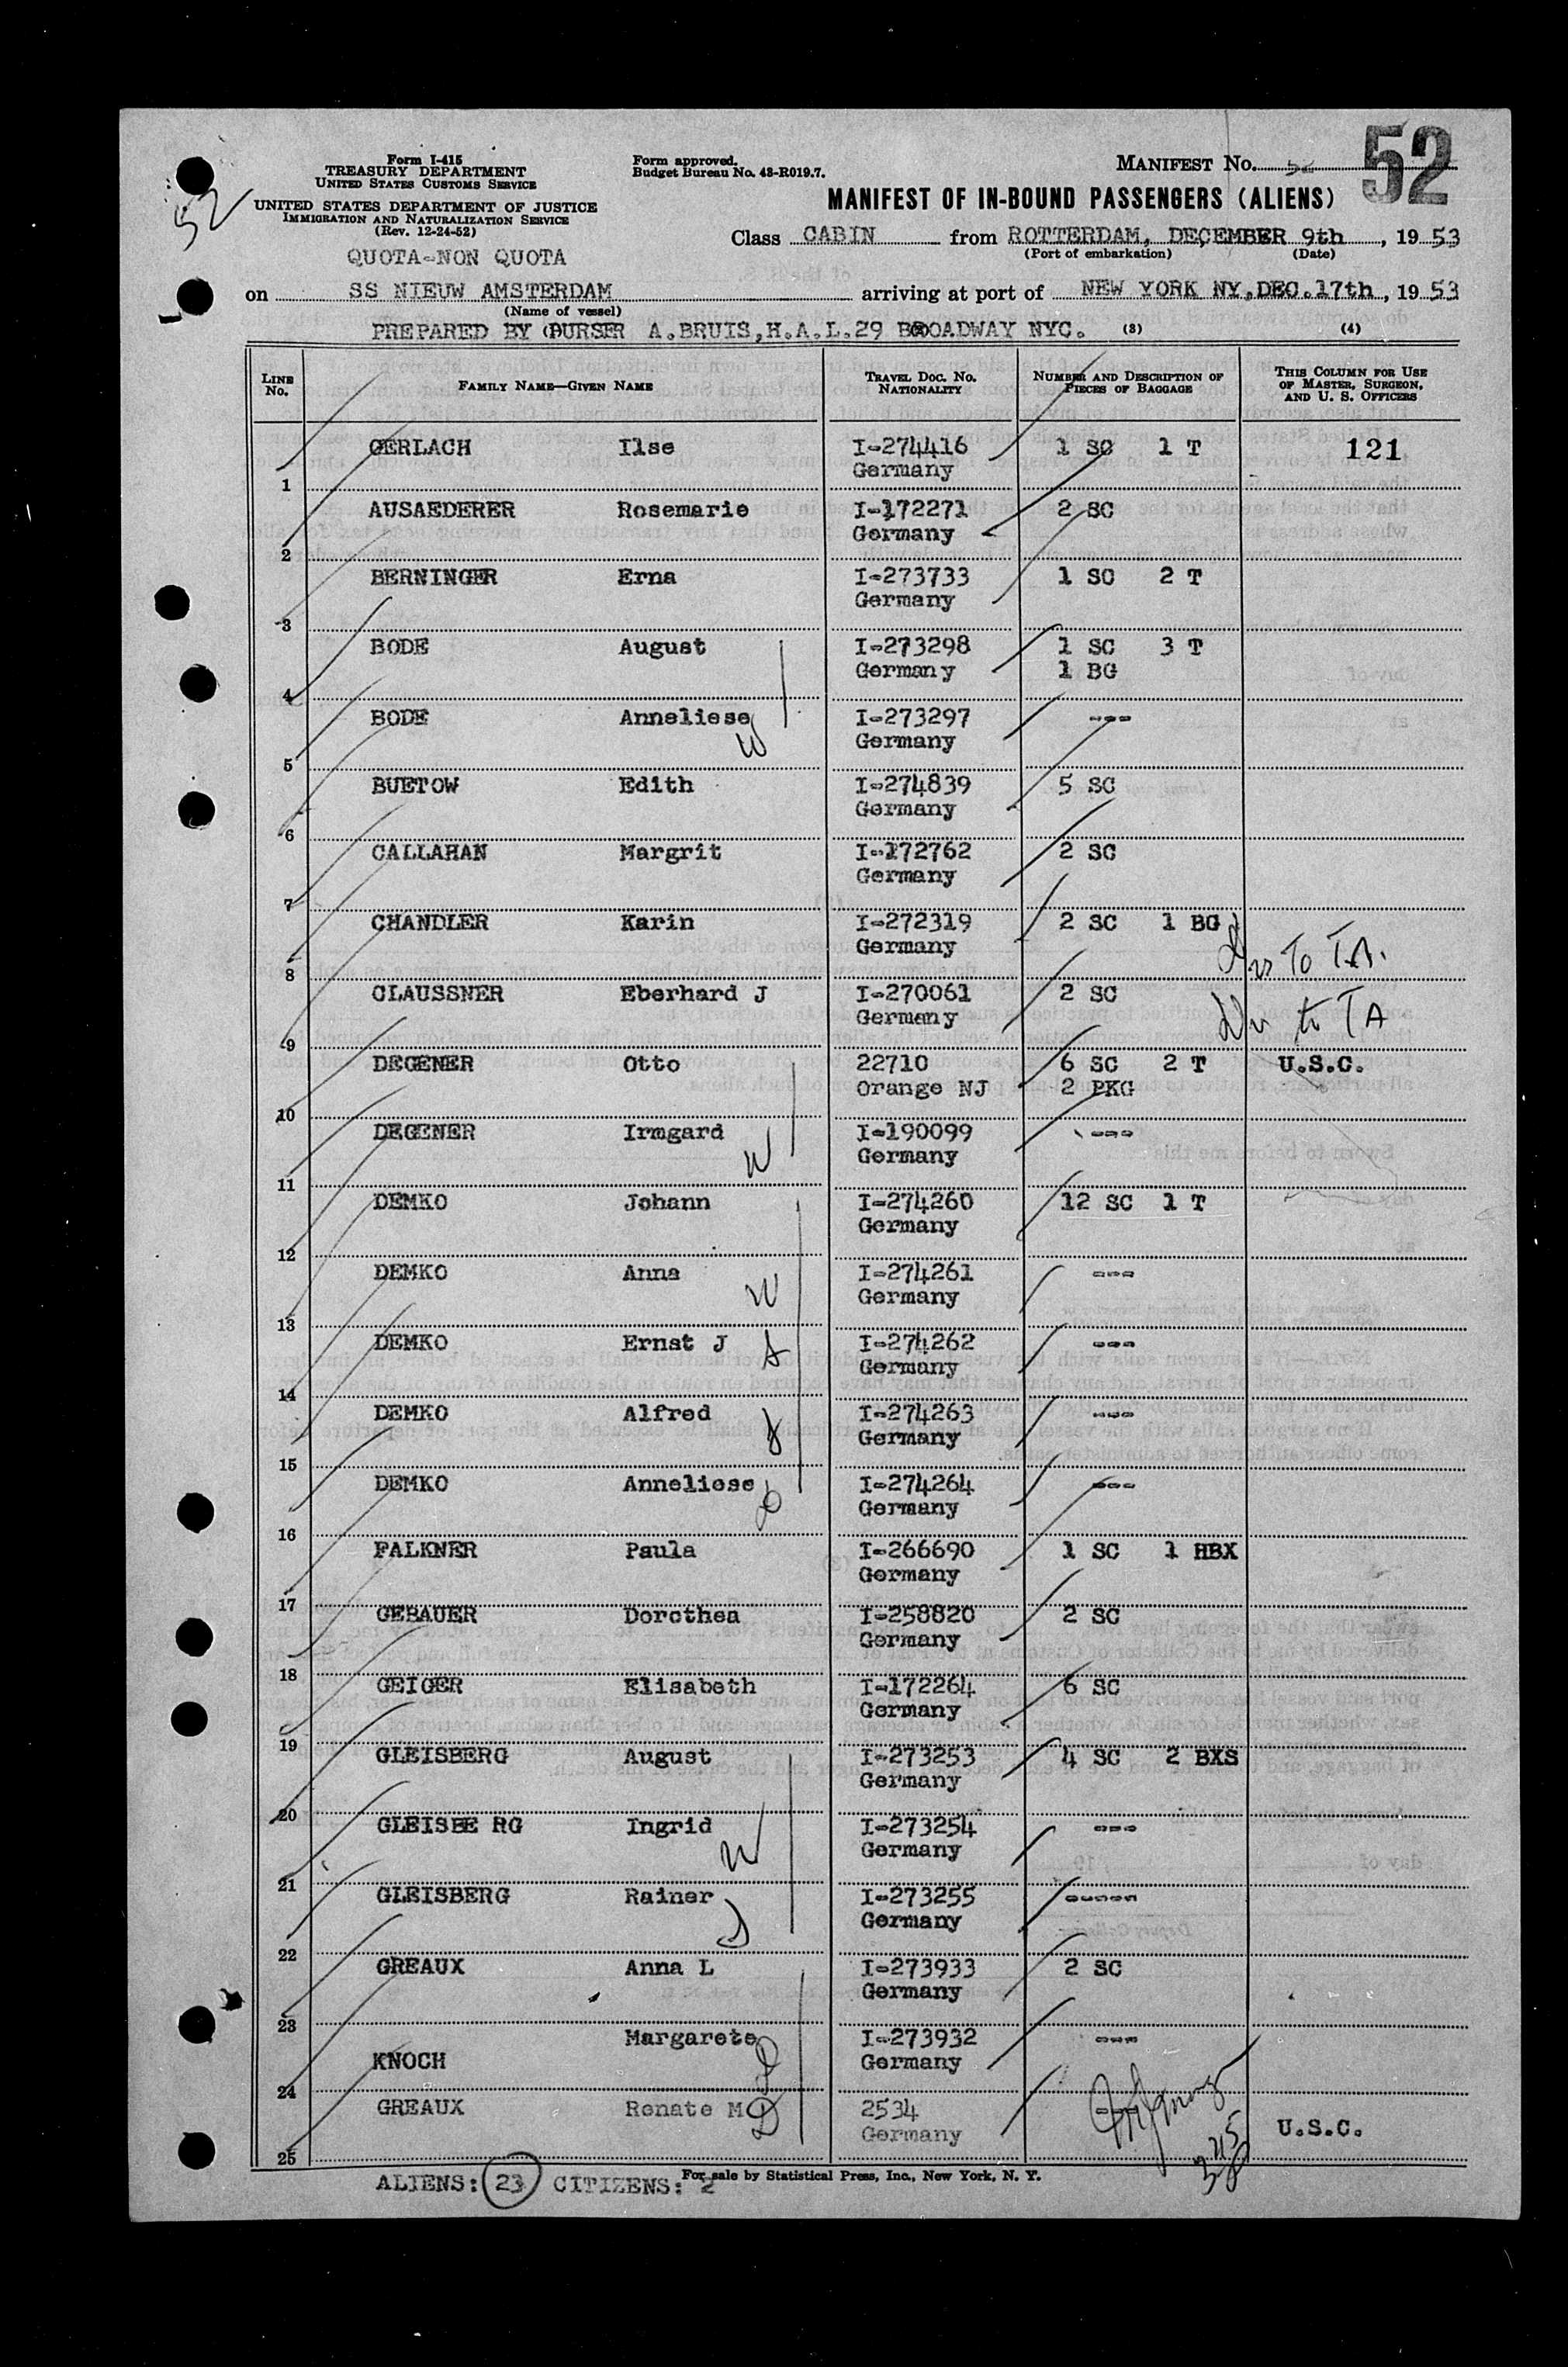 52
Form I-415
TREASURY DEPARTMENT
UNITED STATES CUSTOMS SERVICE
UNITED STATES DEPARTMENT OF JUSTICE
IMMIGRATION AND NATURALIZATION SERVICE
(Rev. 12-24-52)
Form approved.
Budget Bureau No. 43-R019.7.
MANIFEST NO. 52
52
MANIFEST OF IN-BOUND PASSENGERS (ALIENS)
Class CABIN from ROTTERDAM, DECEMBER 9th, 1953
(Port of embarkation) (Date)
QUOTA-NON QUOTA
on SS NIEUW AMSTERDAM arriving at port of NEW YORK NY, DEC.17th, 1953
(Name of vessel)
PREPARED BY PURSER A.BRUIS,H.A.L.29 BROADWAY NYC. (3) (4)
LINE NO. FAMILY NAME—GIVEN NAME TRAVEL DOC. NO. NATIONALITY NUMBER AND DESCRIPTION OF PIECES OF BAGGAGE THIS COLUMN FOR USE OF MASTER, SURGEON, AND U. S. OFFICERS
GERLACH Ilse I-274416 1 SC 1 T 121
1 Germany
AUSAEDERER Rosemarie I-172271 2 SC
2 Germany
BERNINGER Erna I-273733 1 SC 2 T
3 Germany
BODE August I-273298 1 SC 3 T
4 Germany 1 BG
BODE Anneliese W I-273297 ---
5 Germany
BUETOW Edith I-274839 5 SC
6 Germany
CALLAHAN Margrit I-172762 2 SC
7 Germany
CHANDLER Karin I-272319 2 SC 1 BG
8 Germany To TA.
CLAUSSNER Eberhard J I-270061 2 SC
9 Germany to TA
DEGENER Otto 22710 6 SC 2 T U.S.C.
10 Orange NJ 2 PKG
DEGENER Irmgard W I-190099 ---
11 Germany
DEMKO Johann I-274260 12 SC 1 T
12 Germany
DEMKO Anna W I-274261 ---
13 Germany
DEMKO Ernst J I-274262 ---
14 Germany
DEMKO Alfred I-274263 ---
15 Germany
DEMKO Anneliese I-274264 ---
16 Germany
FALKNER Paula I-266690 1 SC 1 HBX
17 Germany
GEBAUER Dorothea I-258820 2 SC
18 Germany
GEIGER Elisabeth I-172264 6 SC
19 Germany
GLEISBERG August I-273253 4 SC 2 BXS
20 Germany
GLEISBE RG Ingrid W I-273254 ---
21 Germany
GLEISBERG Rainer I-273255 -----
22 Germany
GREAUX Anna L I-273933 2 SC
23 Germany
Margarete I-273932 ---
KNOCH Germany
24
GREAUX Renate M D 2534 ---
25 Germany U.S.C.
ALIENS: 23 CITIZENS: 2
For sale by Statistical Press, Inc., New York, N. Y.